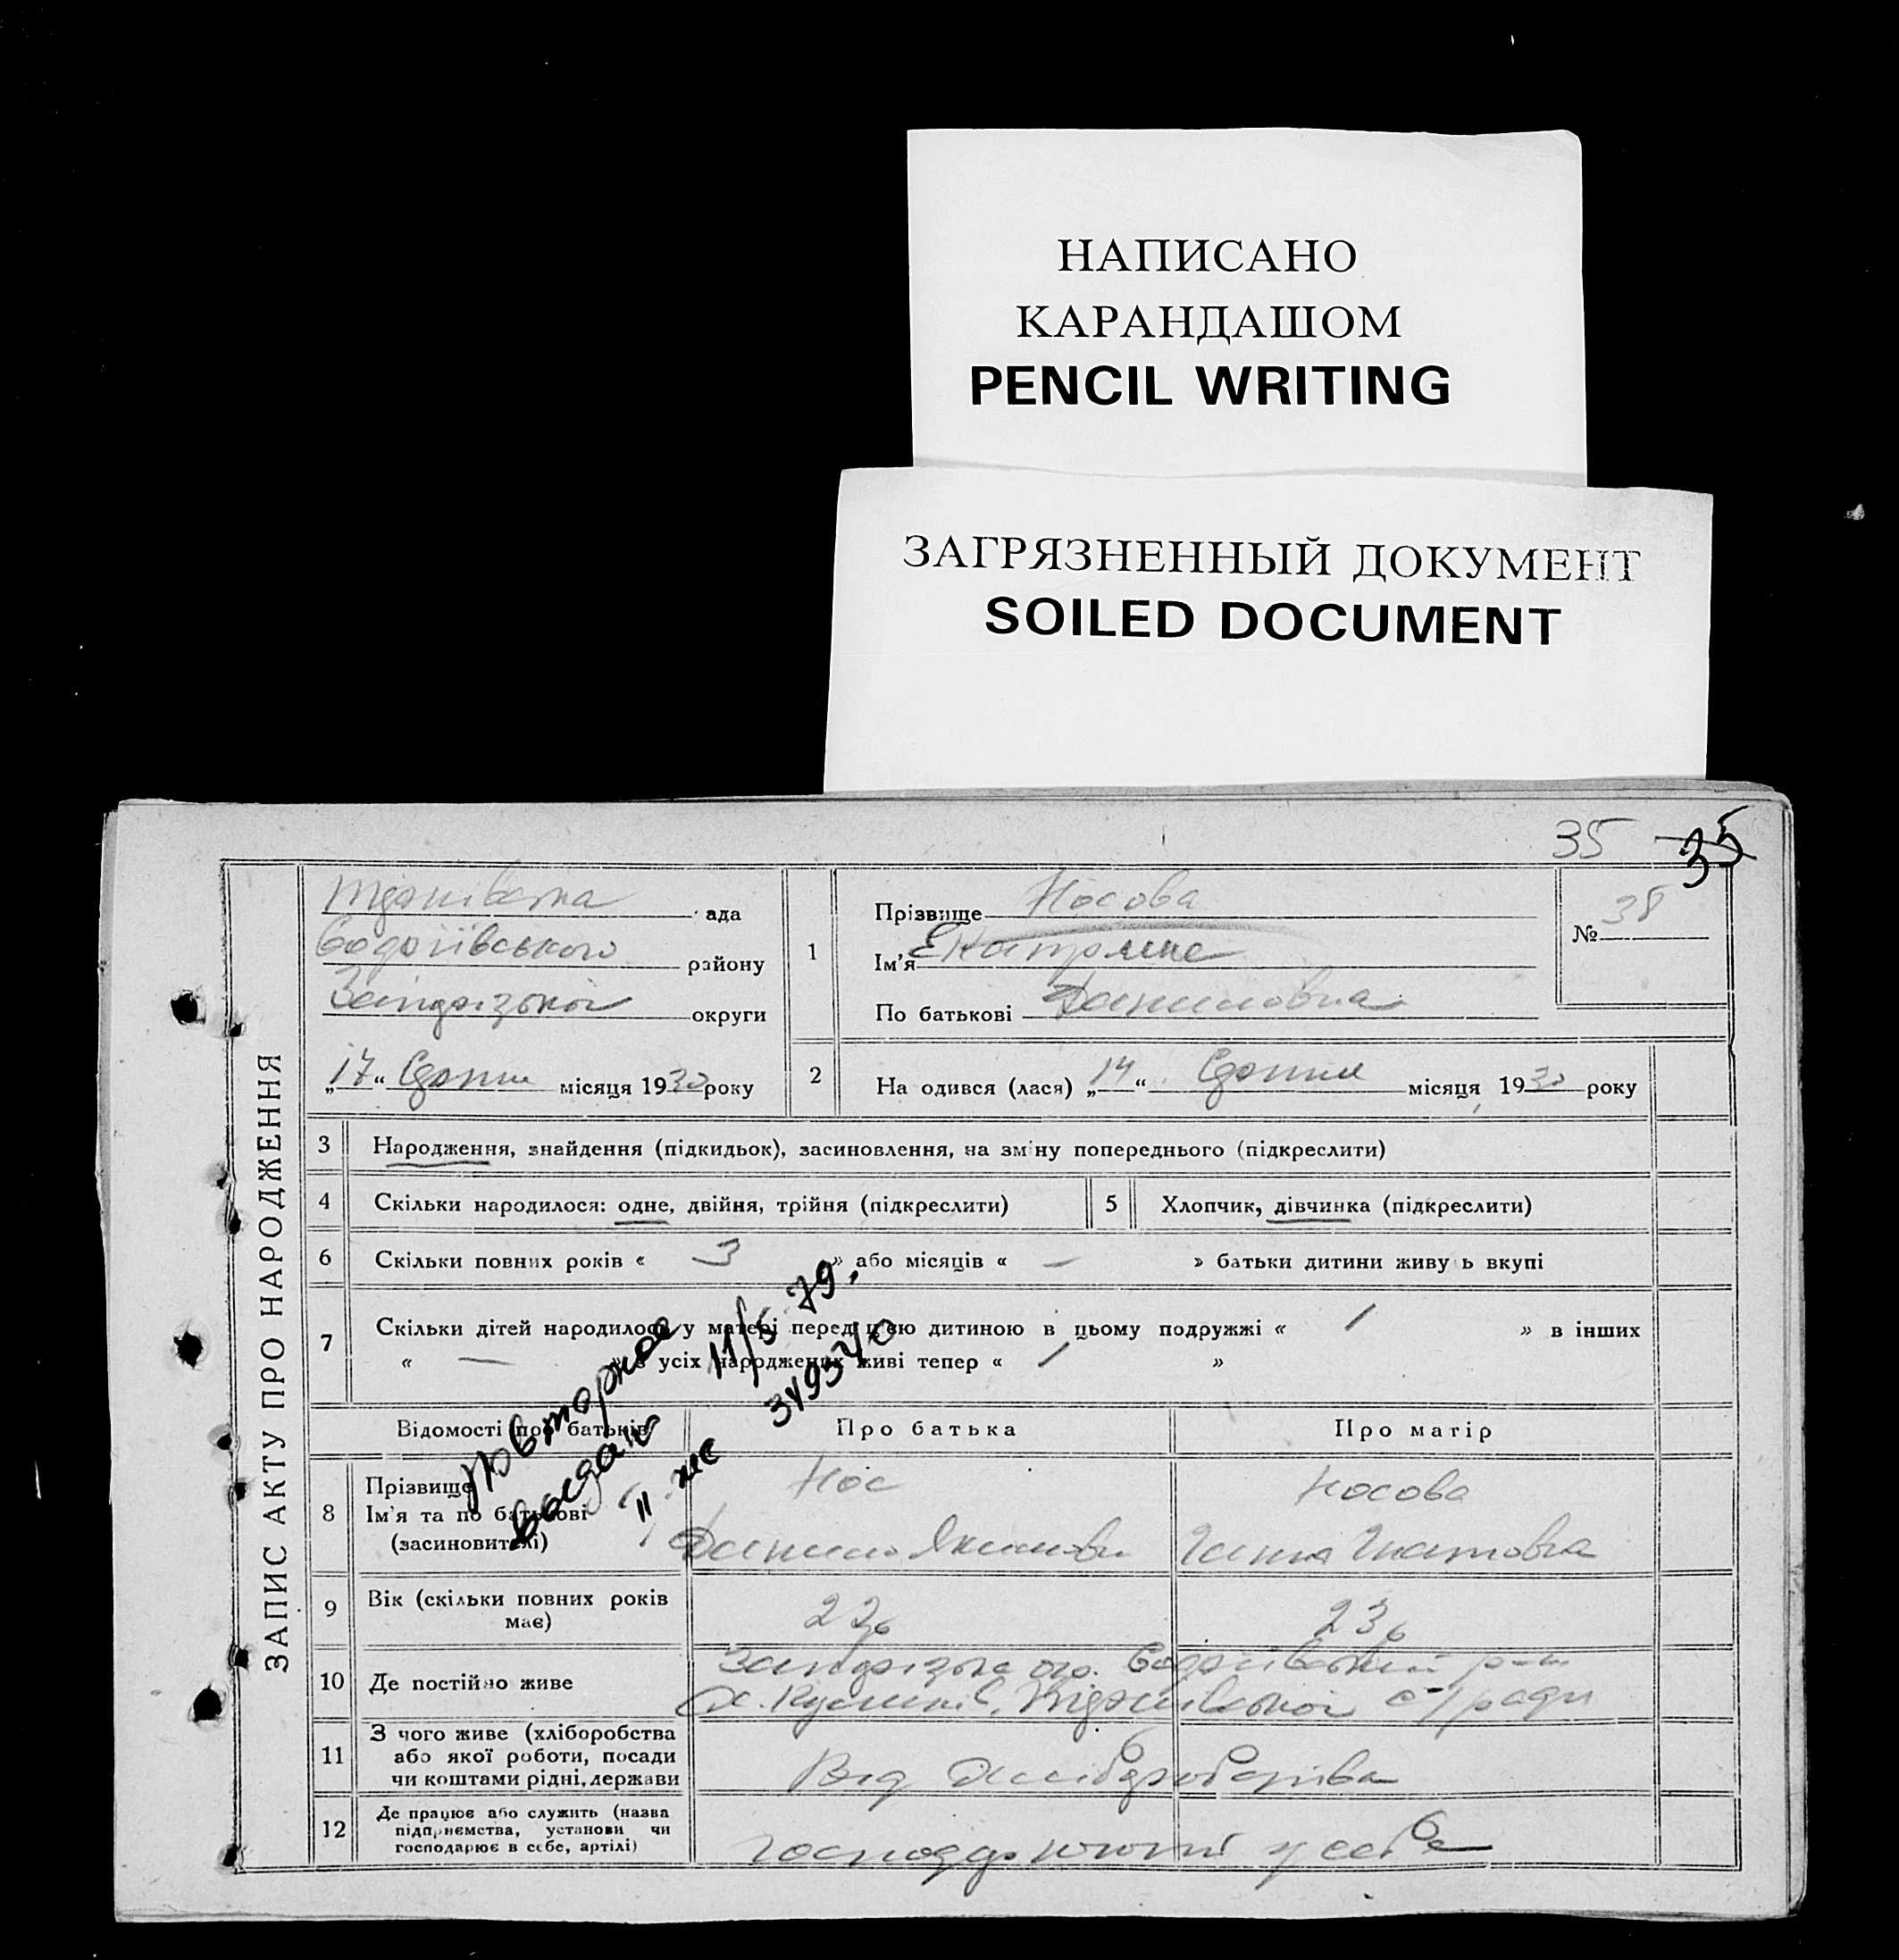 НАПИСАНО
КАРАНДАШОМ
PENCIL WRITING
ЗАГРЯЗНЕННЫЙ ДОКУМЕНТ
SOILED DOCUMENT
35 35
ЗАПИС АКТУ ПРО НАРОДЖЕННЯ
ада
району
округи
„17“ місяця 1930 року
1
Прізвище Носова
Ім'я Катрина
По батькові Даниловна
№ 38
2
На одився (лася) „14“ місяця, 1930 року
3 Народження, знайдення (підкидьок), засиновлення, на зміну попереднього (підкреслити)
4 Скільки народилося: одне, двійня, трійня (підкреслити)
5 Хлопчик, дівчинка (підкреслити)
6 Скільки повних років « 3 » або місяців « — » батьки дитини живу ь вкупі
7 Скільки дітей народилося у матері перед цією дитиною в цьому подружжі « 1 » в інших
« — » з усіх народжених живі тепер « 1 »
Повторное 11/5 79.
выдано
II жс 349340
Відомості про батьків Про батька Про матір
8 Прізвище
Ім'я та по батькові
(засиновителі)
Нос
Данило Якимови
Носова
Ганна Гнатовна
9 Вік (скільки повних років
має)
22р
23р
10 Де постійно живе
11 З чого живе (хліборобства
або якої роботи, посади
чи коштами рідні, держави
Від хліборобства
12 Де працює або служить (назва
підприємства, установи чи
господарює в себе, артілі)
у себе